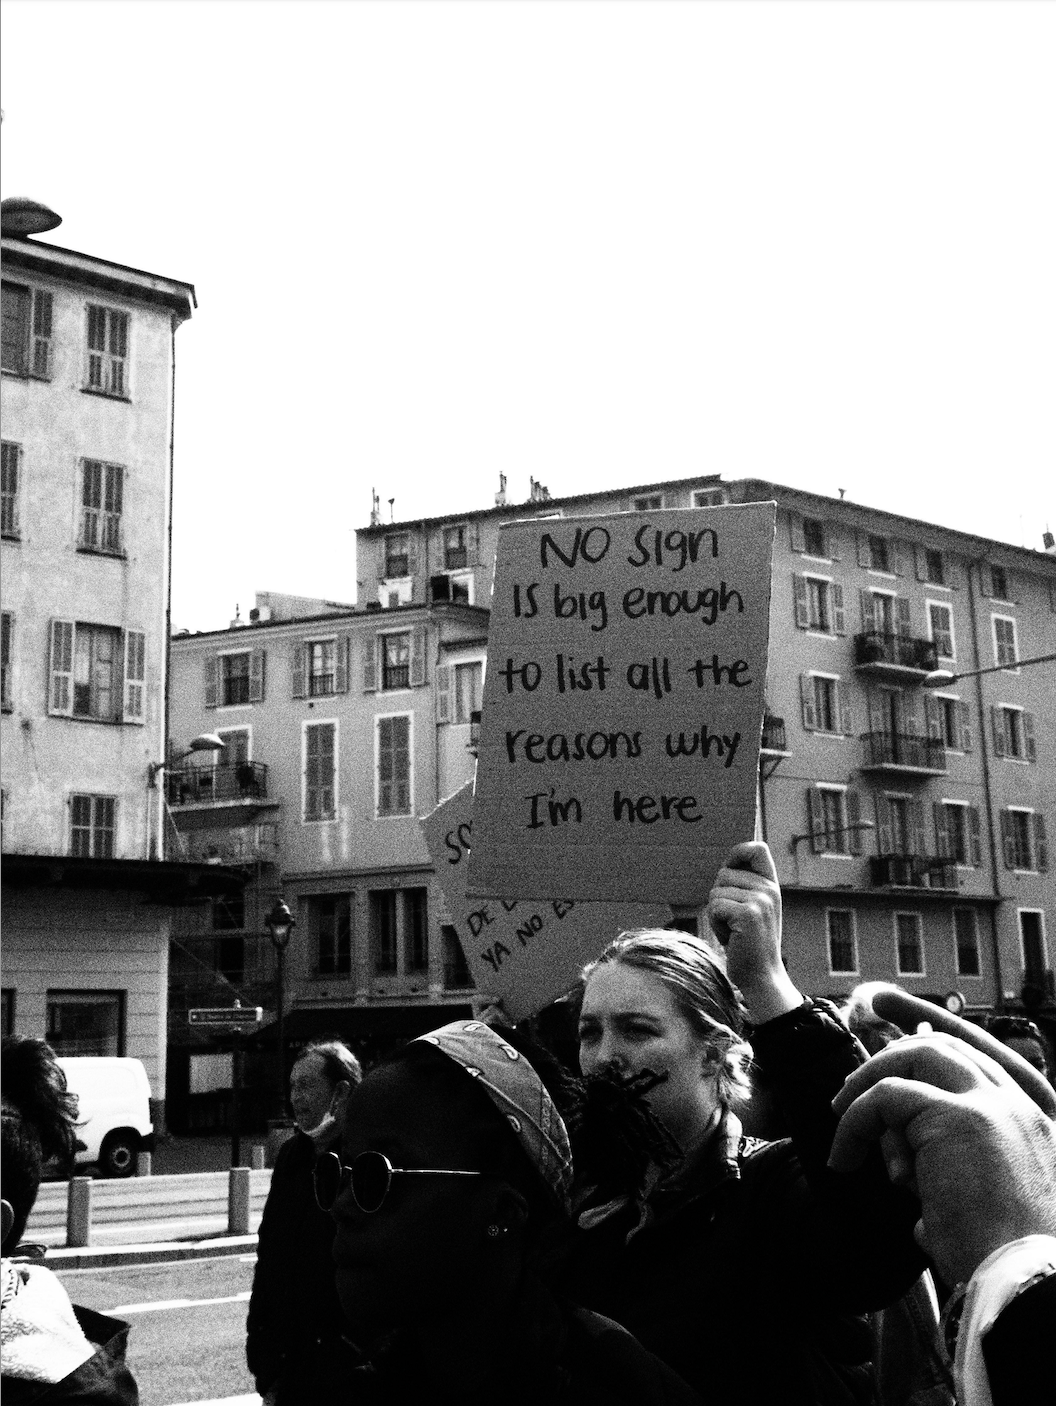 NO Sign
IS big enough
to list all the
reasons why
I'm here
SO
DE
YA NO ES